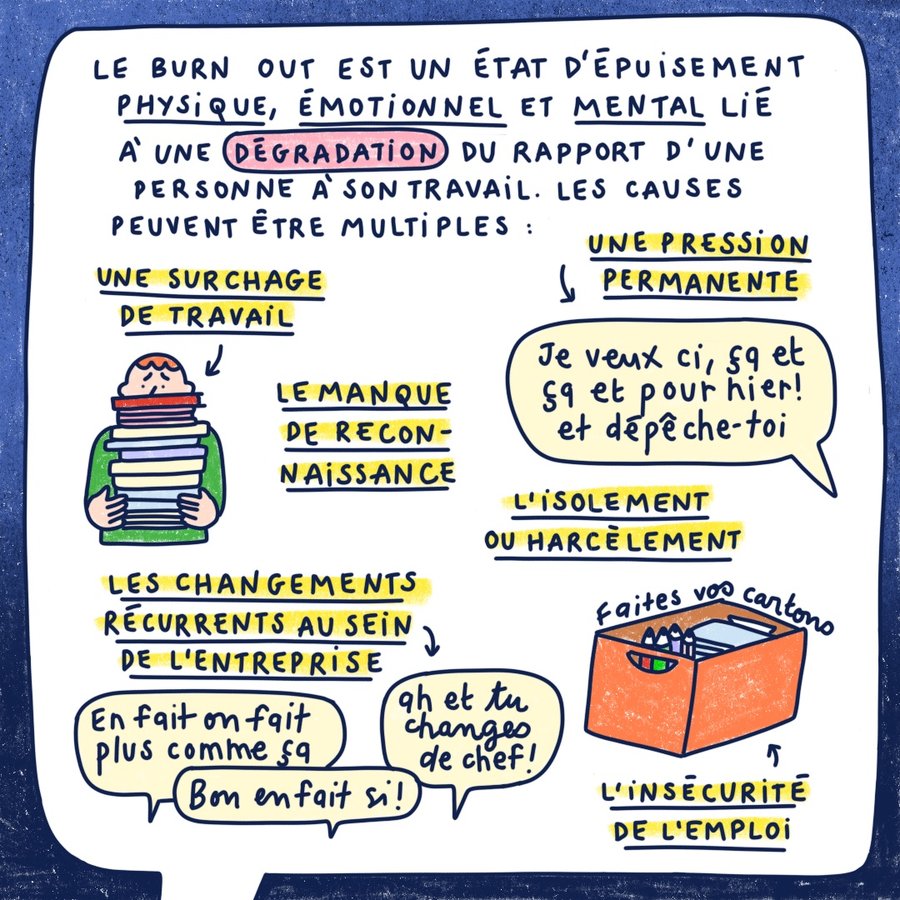 LE BURN OUT EST UN ÉTAT D'ÉPUISEMENT
PHYSIQUE, ÉMOTIONNEL ET MENTAL LIÉ
À UNE DÉGRADATION DU RAPPORT D'UNE
PERSONNE À SON TRAVAIL. LES CAUSES
PEUVENT ÊTRE MULTIPLES :
UNE SURCHAGE
DE TRAVAIL
UNE PRESSION
PERMANENTE
Je veux ci, ça et
ça et pour hier!
et dépêche-toi
LE MANQUE
DE RECON-
NAISSANCE
L'ISOLEMENT
OU HARCÈLEMENT
LES CHANGEMENTS
RÉCURRENTS AU SEIN
DE L'ENTREPRISE
En fait on fait
plus comme ça
Bon en fait si!
ah et tu
changes
de chef!
Faites vos cartons
L'INSÉCURITÉ
DE L'EMPLOI